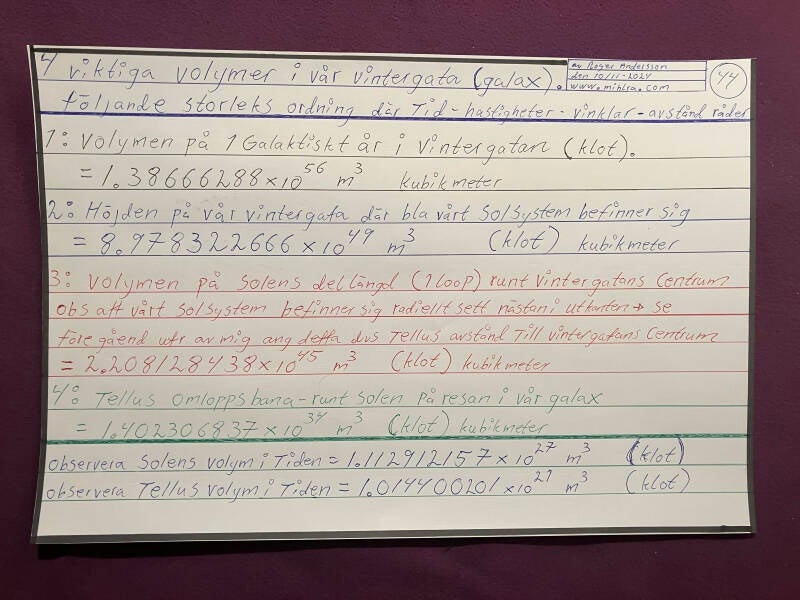 4 viktiga volymer i vår vintergata (galax).
av Roger Andersson
den 10/11-2024
www.mihlra.com
44
följande storleks ordning där Tid-hastigheter-vinklar-avstånd råder
1: Volymen på 1 Galaktiskt år i Vintergatan (klot).
= 1.38666288×10^56 m³ kubikmeter
2: Höjden på vår vintergata där bla vårt solsystem befinner sig
= 8.978322666×10^49 m³ (klot) kubikmeter
3: Volymen på Solens dellängd (1 loop) runt Vintergatans Centrum
obs att vårt solsystem befinner sig radiellt sett nästan i utkanten → se
före gåend utr av mig ang detta dvs Tellus avstånd Till vintergatans Centrum
= 2.208128438×10^45 m³ (klot) kubikmeter
4: Tellus omloppsbana-runt solen på resan i vår galax
= 1.402306837×10^34 m³ (klot) kubikmeter
observera Solens volym i Tiden = 1.112912157×10^27 m³ (klot)
observera Tellus volym i Tiden = 1.014400201×10^21 m³ (klot)